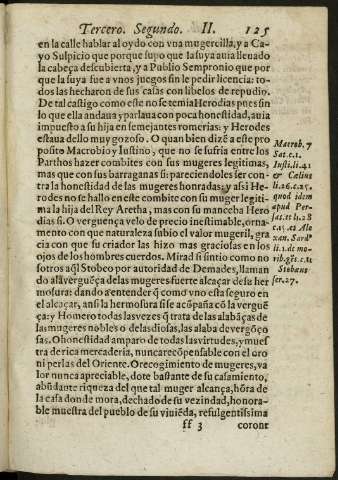 Tercero. Segundo. II. 125
en la calle hablar al oydo con vna mugercilla, y a Ca-
yo Sulpicio que porque supo que la suya auia llenado
la cabeça descubierta, y a Publio Sempronio que por
que la suya fue a vnos juegos sin le pedir licencia: to-
dos las hecharon de sus casas con libelos de repudio.
De tal castigo como este no se temia Herodias pues sin
lo que ella andaua y parlaua con poca honestidad, auia
impuesto a su hija en semejantes romerias: y Herodes
estaua dello muy gozoso. O quan bien dizẽ a este pro
posito Macrobio y Iustino, que no se sufria entre los
Parthos hazer combites con sus mugeres legitimas,
mas que con sus barraganas si: pareciendoles ser con-
tra la honestidad de las mugeres honradas: y asi He-
rodes no se hallo en este combite con su muger legiti-
ma la hija del Rey Aretha, mas con su manceba Hero
dias si. O verguença velo de precio inestimable, orna-
mento con que naturaleza subio el valor mugeril, gra
cia con que su criador las hizo mas graciosas en los
ojos de los hombres cuerdos. Mirad si sintio como no
sotros aq̃l Stobeo por autoridad de Demades, llaman
do ala verguẽça de las mugeres fuerte alcaçar de su her
mosura: dando a entender q̃ como vno esta seguro en
el alcaçar, ansi la hermosura si se acõpaña cõ la verguẽ
ça: y Homero todas las vezes q̃ trata de las alabãças de
las mugeres nobles o de las diosas, las alaba de vergõço
sas. O honestidad amparo de todas las virtudes, y mues
tra de rica mercaderia, nunca recõpensible con el oro
ni perlas del Oriente. O recogimiento de mugeres, va
lor nunca apreciable, dote bastante de su casamiento,
abũdante riqueza del que tal muger alcança, hõra de
la casa donde mora, dechado de su vezindad, honora-
ble muestra del pueblo de su viuiẽda, resulgentissima
ff 3 coront
Macrob. 7
Sat. c. 1.
Iusti. li. 41
& Celius
li. 26. c. 25.
quod idem
apud Per-
sas. et li. 28
c. 15. et Ale
xan. Sard⁹
li. 1. de mo-
rib. gẽt. c. 11
Stobæus
ser. 27.